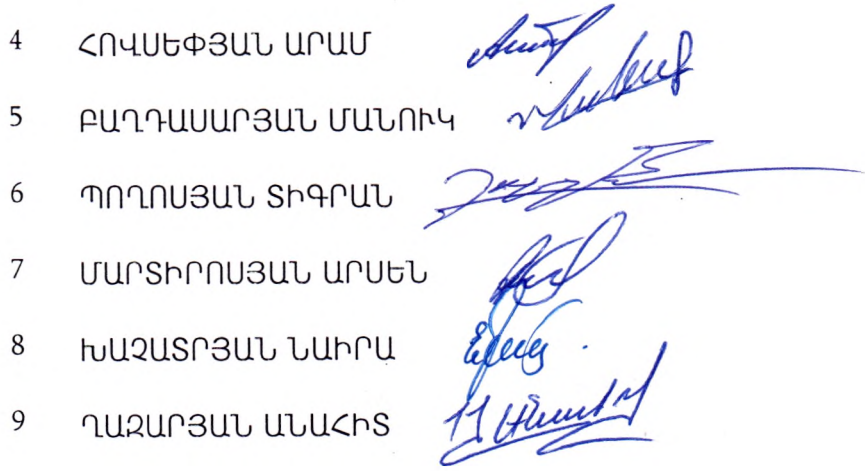 4 ՀՈՎՍԵՓՅԱՆ ԱՐԱՄ
5 ԲԱՂԴԱՍԱՐՅԱՆ ՄԱՆՈՒԿ
6 ՊՈՂՈՍՅԱՆ ՏԻԳՐԱՆ
7 ՄԱՐՏԻՐՈՍՅԱՆ ԱՐՍԵՆ
8 ԽԱՉԱՏՐՅԱՆ ՆԱԻՐԱ
9 ՂԱԶԱՐՅԱՆ ԱՆԱՀԻՏ